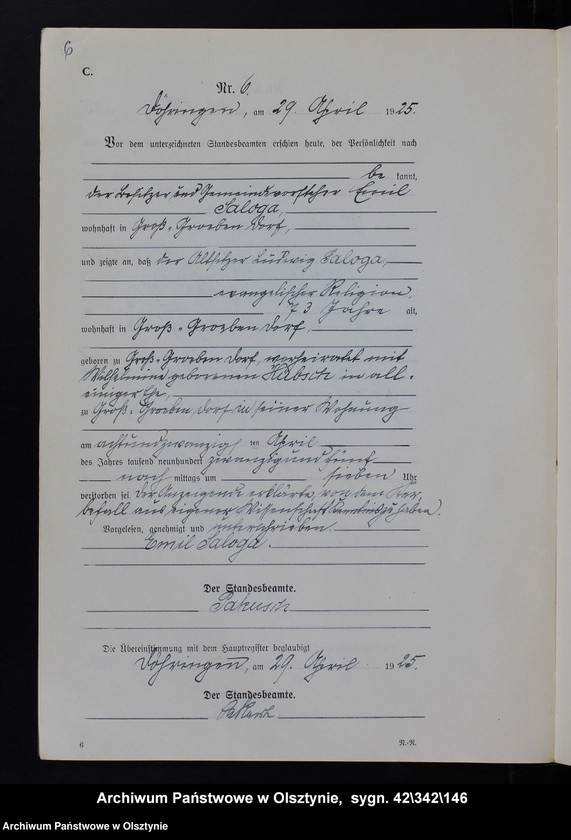 6
C.
Nr. 6.
Döhringen, am 29. April 1925.
Vor dem unterzeichneten Standesbeamten erschien heute, der Persönlichkeit nach
be kannt,
der Besitzer und Gemeindevorsteher Emil
Saloga,
wohnhaft in Groß-Groeben Dorf,
und zeigte an, daß der Altsitzer Ludwig Saloga,
evangelischer Religion.
73 Jahre alt,
wohnhaft in Groß-Groeben Dorf,
geboren zu Groß-Groeben Dorf, verheiratet mit
Wilhelmine geborenen Häbsch in all-
einiger Ehe,
zu Groß-Groeben Dorf in seiner Wohnung
am achtundzwanzig ten April
des Jahres tausend neunhundert zwanzigundfünf
nach mittags um sieben Uhr
verstorben sei. Der Anzeigende erklärte, von dem Ster-
befall aus eigener Wissenschaft Kenntnis zu haben.
Vorgelesen, genehmigt und unterschrieben.
Emil Saloga.
Der Standesbeamte.
Die Übereinstimmung mit dem Hauptregister beglaubigt
Döhringen, am 29. April 1925.
Der Standesbeamte.
6
N.-R.
Archiwum Państwowe w Olsztynie, sygn. 42\342\146
Archiwum Państwowe w Olsztynie